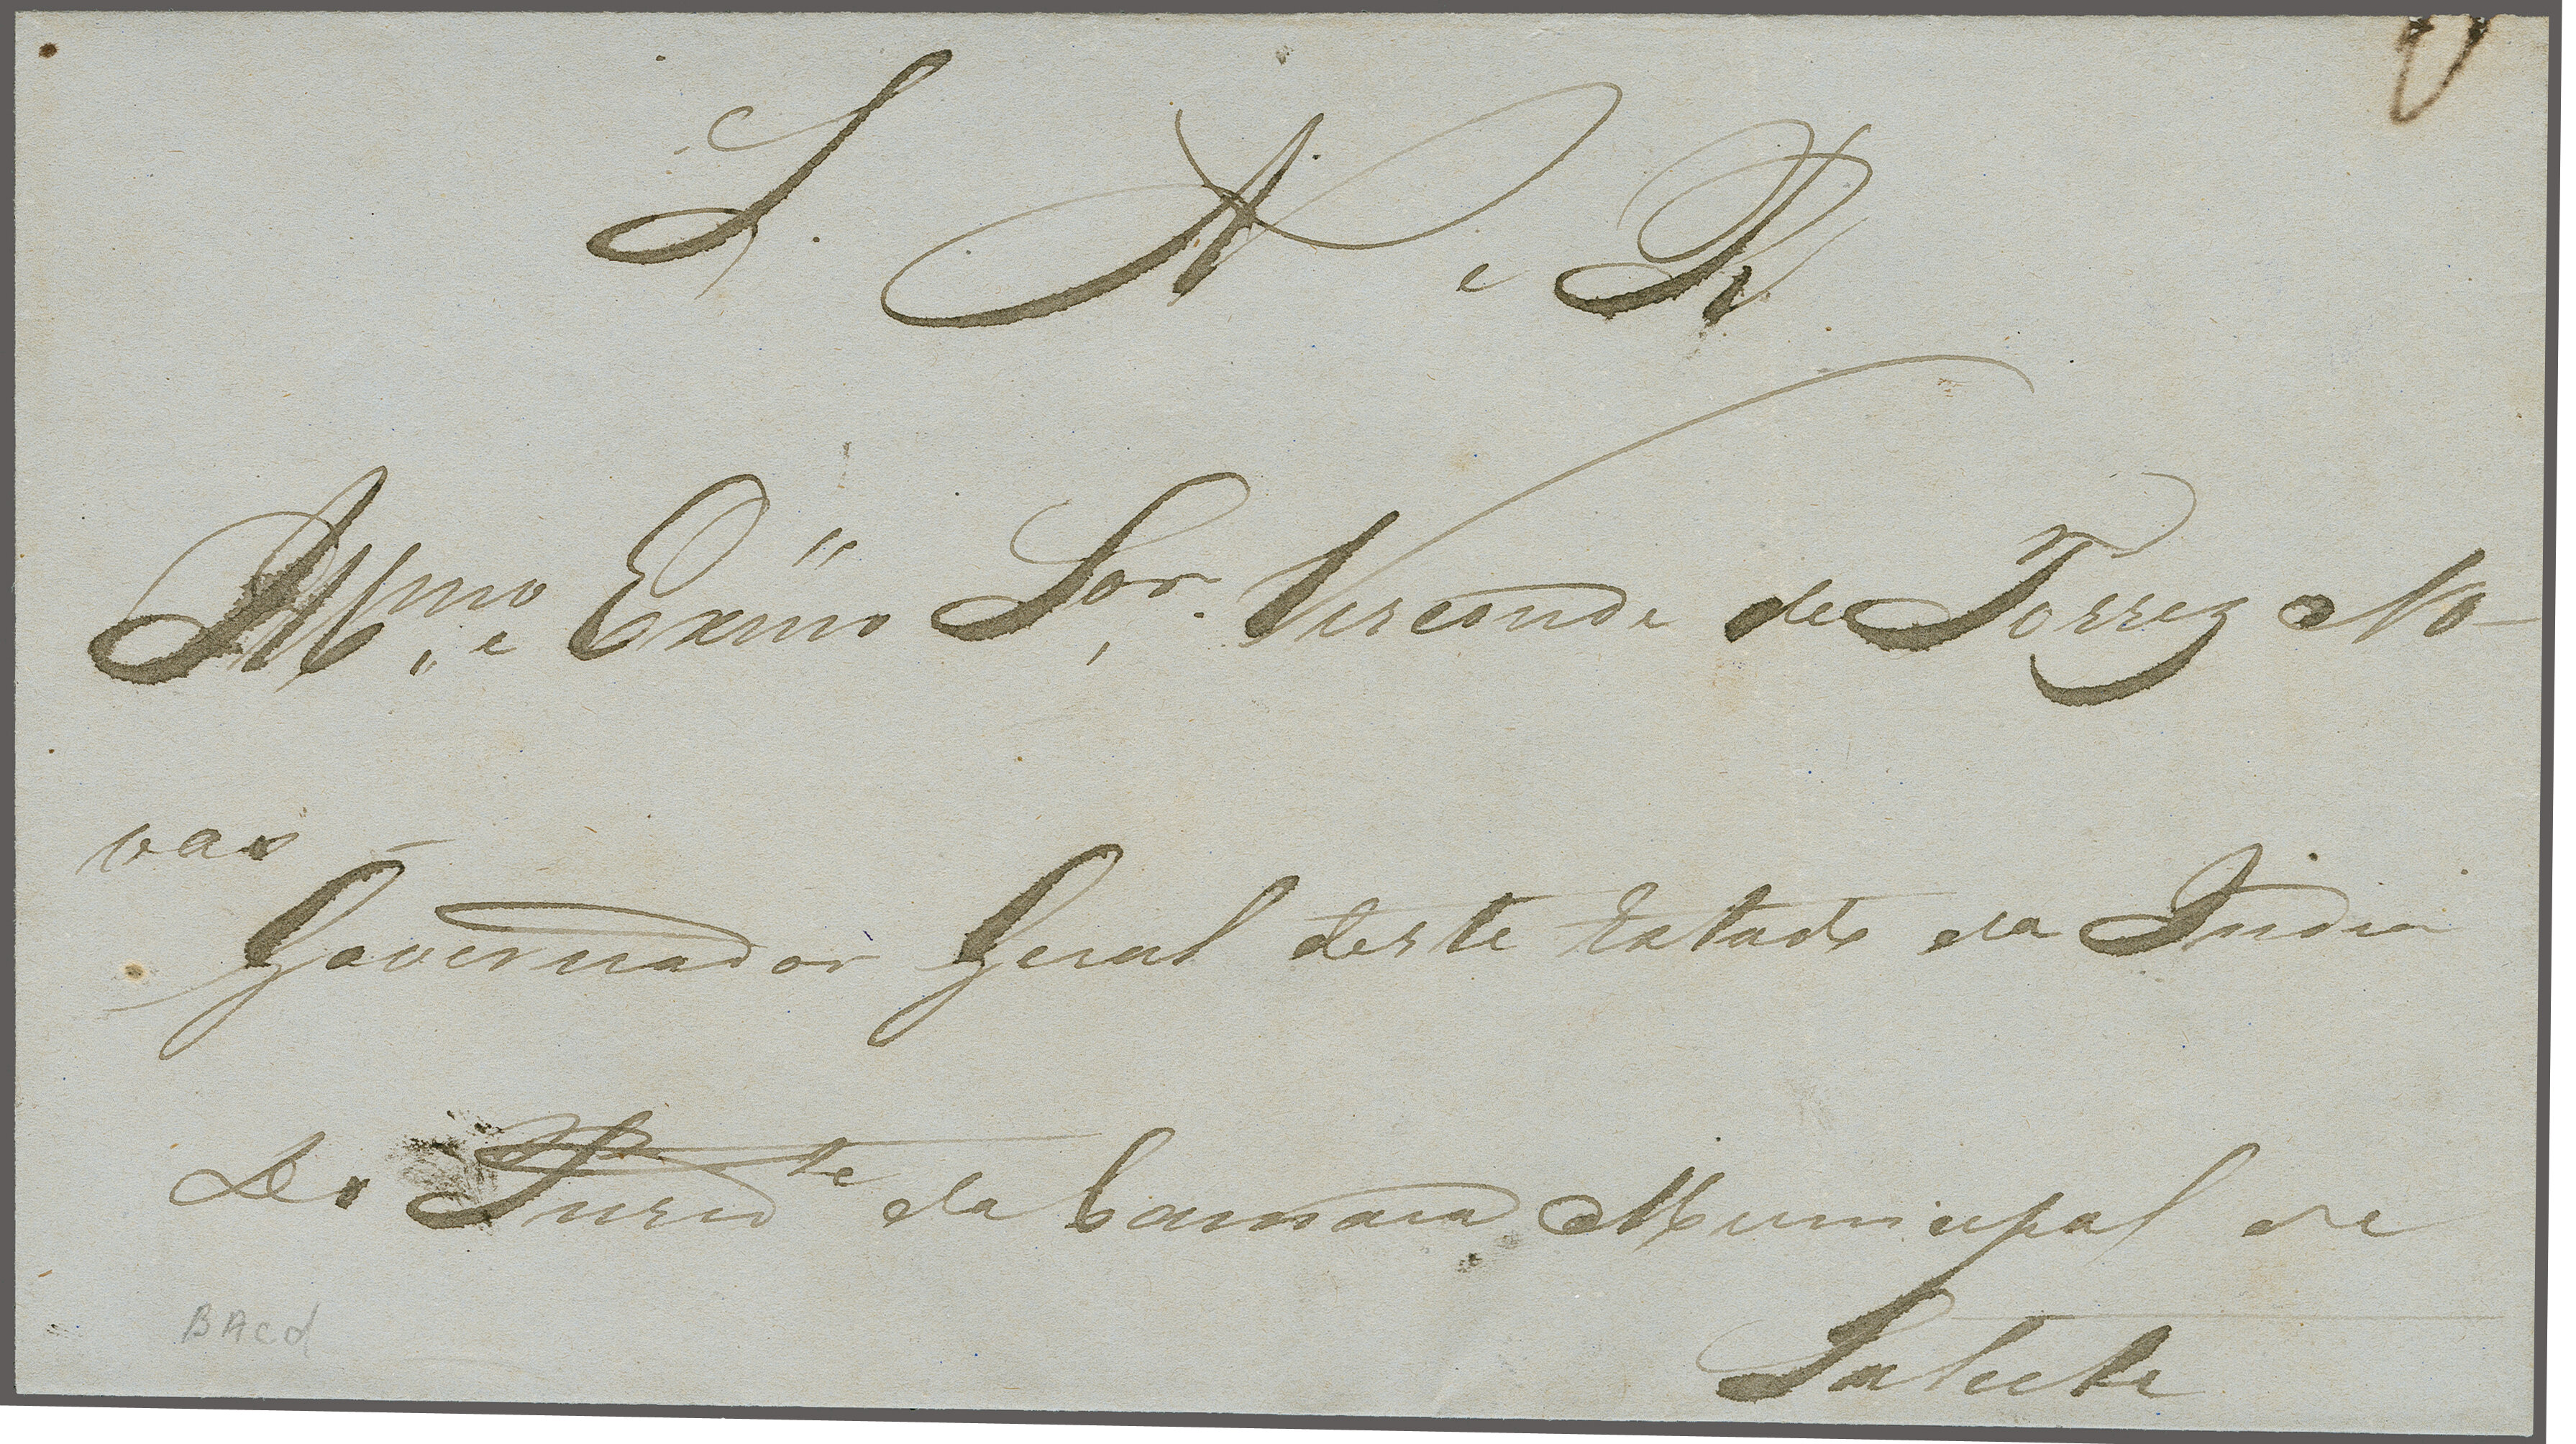 S. A e R
Illmo. e Exmo Sor. Visconde de Torres No-
vas
Governador Geral deste Estado da India
Do Presid te da Camara Municipal de
Salsete
BAcd